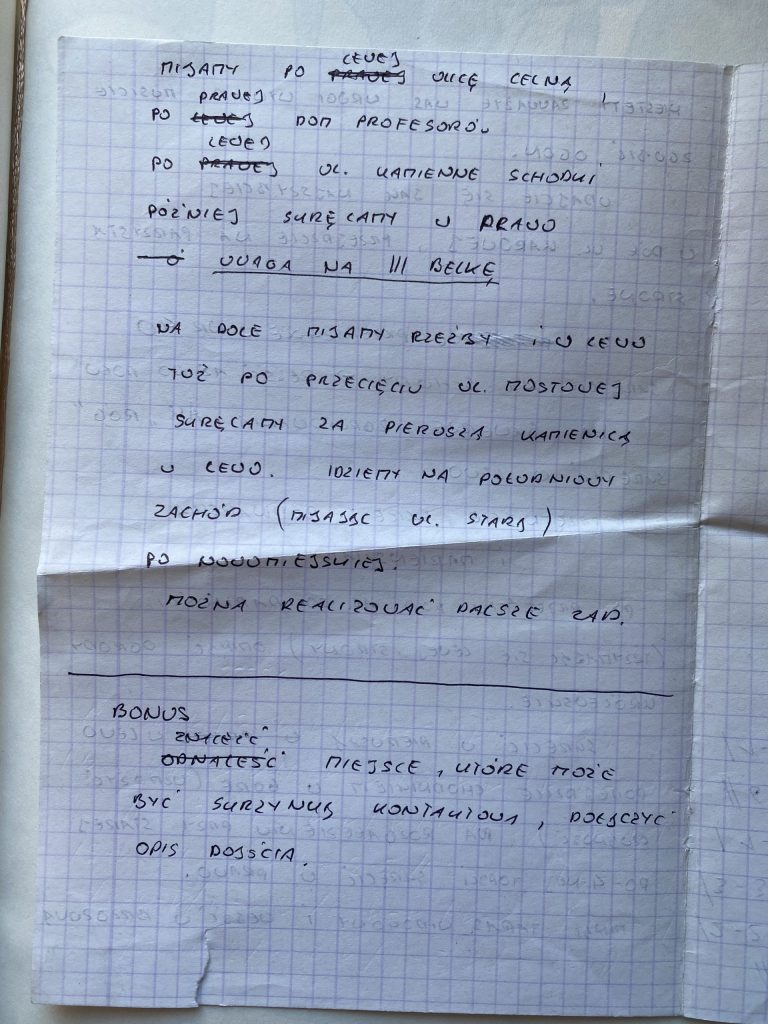 LEWEJ
MIJAMY PO PRAWEJ ULICĘ CELNĄ,
PRAWEJ
PO LEWEJ DOM PROFESORÓW
LEWEJ
PO PRAWEJ UL. KAMIENNE SCHODKI.
PÓŹNIEJ SKRĘCAMY W PRAWO
UWAGA NA III BELKĘ
NA DOLE MIJAMY RZEŹBY I W LEWO
TUŻ PO PRZECIĘCIU UL. MOSTOWEJ
SKRĘCAMY ZA PIERWSZĄ KAMIENICĄ
W LEWO. IDZIEMY NA POŁUDNIOWY
ZACHÓD (MIJAJĄC UL. STARĄ)
PO NOWOMIEJSKIEJ.
MOŻNA REALIZOWAĆ DALSZE ZAD.
BONUS
ZNALEŹĆ
ODNALEŚĆ MIEJSCE, KTÓRE MOŻE
BYĆ SKRZYNKĄ KONTAKTOWĄ, DOŁĄCZYĆ
OPIS DOJŚCIA.